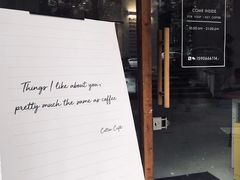 Things I like about you,
pretty much the same as coffee
Cotton Cafe
COME INSIDE
FOR YOUR CAFE COFFEE
10:00 AM - 21:00 PM
15906666114